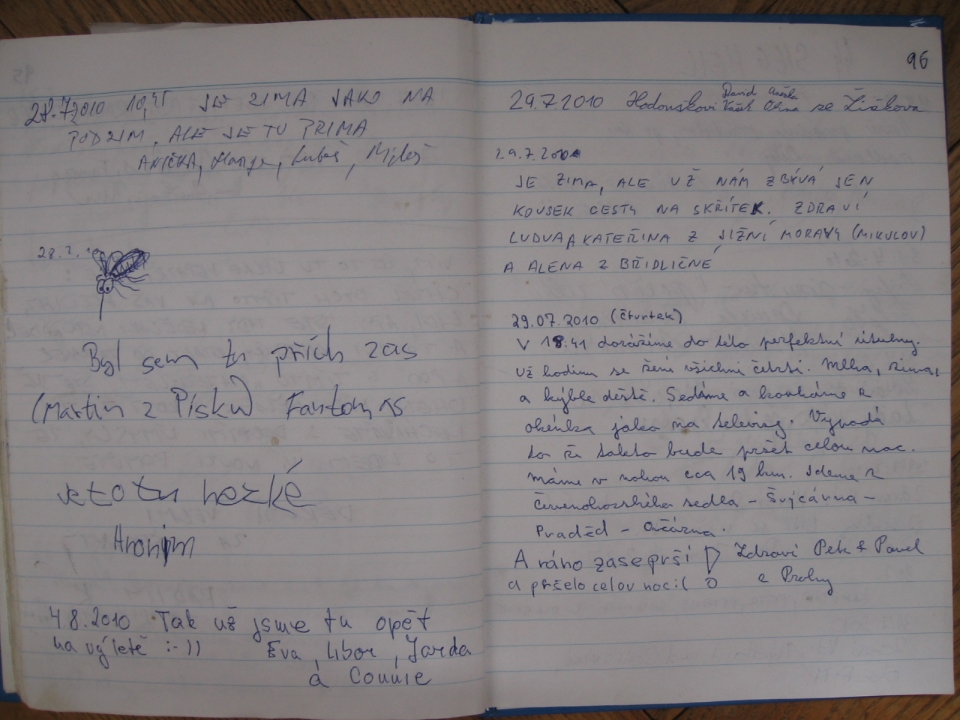 28.7.2010 10,45 JE ZIMA JAKO NA
PODZIM, ALE JE TU PRIMA
ANIČKA, Luboš, Miloš
28.7.
Byl sem tu přích zas
(Martin z Písku) Fantomas
je to tu hezké
Anonim
4.8.2010 Tak už jsme tu opět
na výletě :-))
Eva, Libor, Jarda
a Connie
96
29.7.2010 David
ze Žižkova
29.7.2010
JE ZIMA, ALE UŽ NÁM ZBÝVÁ JEN
KOUSEK CESTY NA SKŘÍTEK. ZDRAVÍ
LUDVA, KATEŘINA Z JIŽNÍ MORAVY (MIKULOV)
A ALENA Z BŘIDLIČNÉ
29.07.2010 (čtvrtek)
V 18.41 dorážíme do této perfektní útulny.
Už hodinu se ženil všichni čerti. Mlha, zima,
a kýble deště. Sedíme a koukáme z
okénka jako na televizi. Vypadá
to že takto bude pršet celou noc.
Máme v nohou cca 19 km. Jdeme z
Červenohorského sedla - Švýcárna -
Praděd - Ovčárna.
A ráno zase prší
a pršelo celou noc :(
Zdraví Petr & Pavel
z Prahy